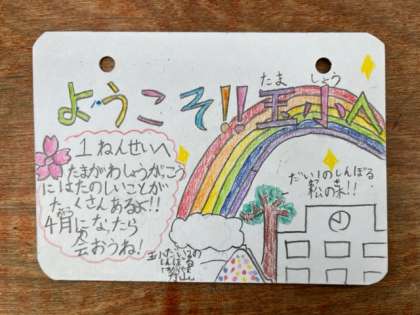 たま しょう
ようこそ!! 玉小へ
1ねんせいへ
たまがわしょうがっこう
にはたのしいことが
たくさんあるよ!!
4月になったら
会おうね!
だい1のしんぼる
松の森!!